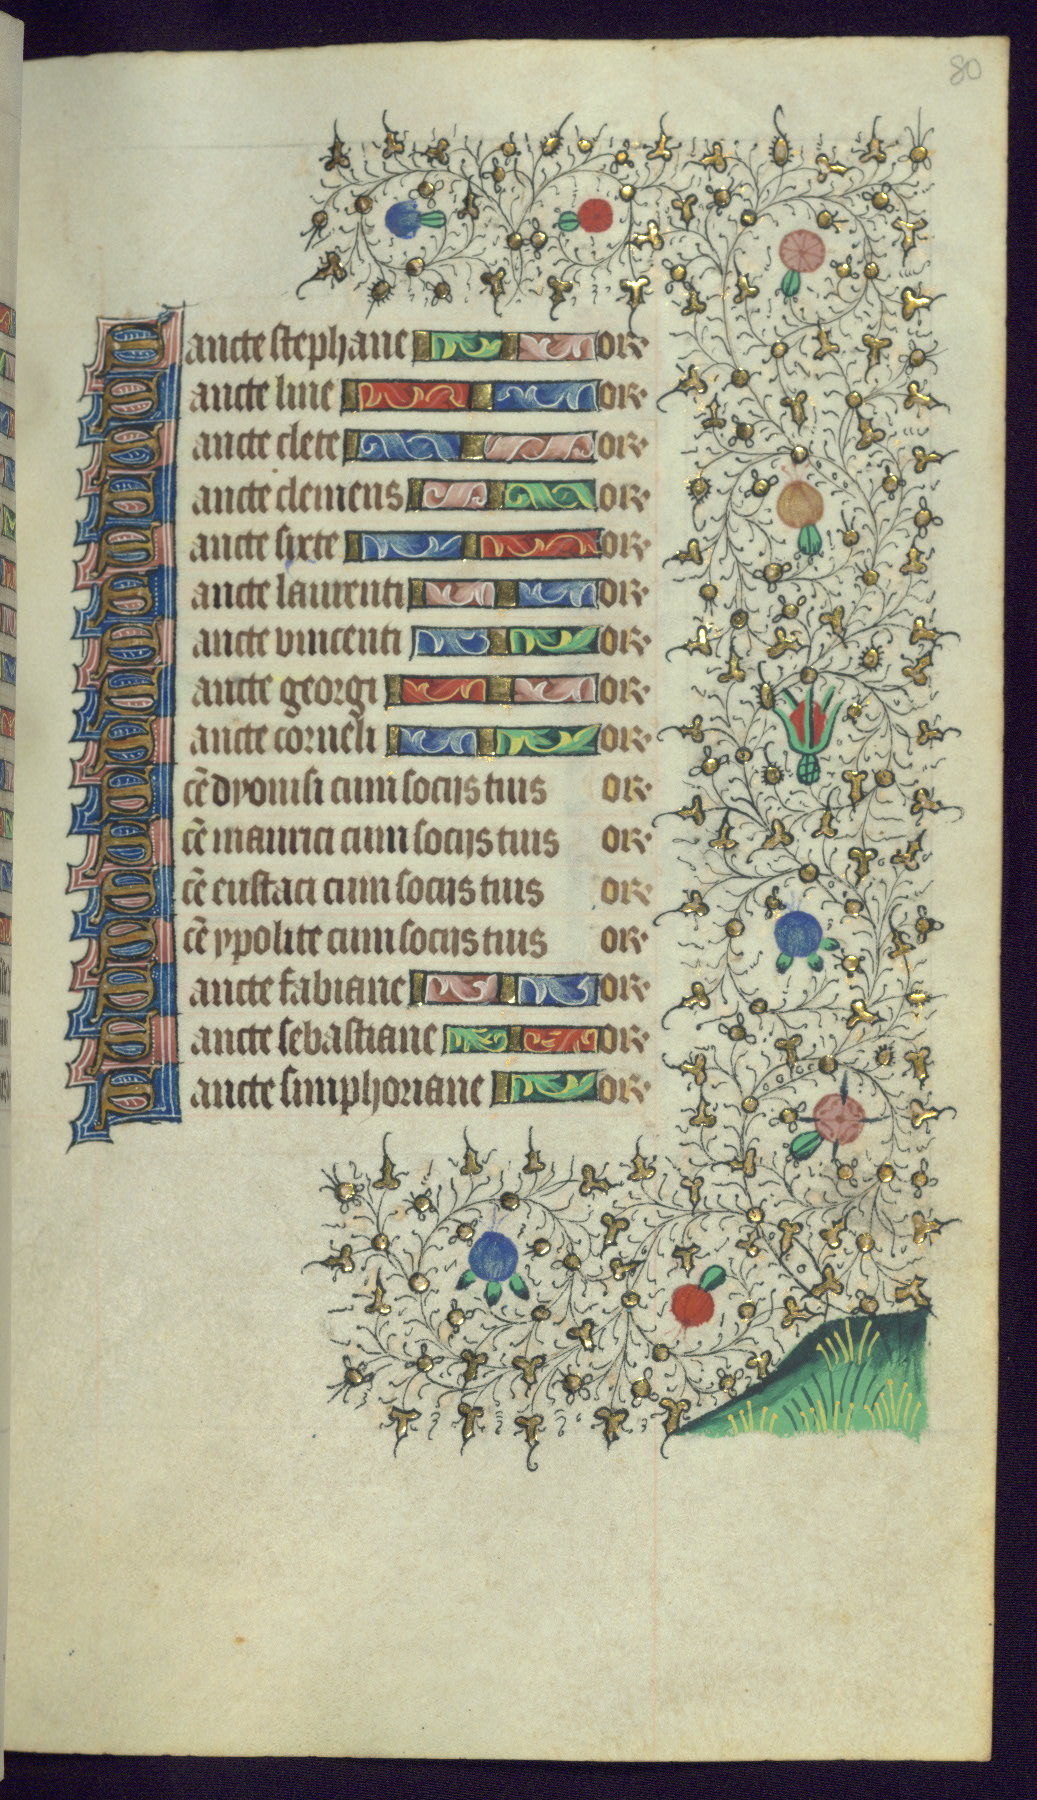 80
Sancte stephane or
Sancte line or
Sancte clete or
Sancte clemens or
Sancte sixte or
Sancte laurenti or
Sancte vincenti or
Sancte georgi or
Sancte corneli or
Scē dyonisi cum socijs tuis or
Scē maurici cum socijs tuis or
Scē eustaci cum socijs tuis or
Scē ypolite cum socijs tuis or
Sancte fabiane or
Sancte sebastiane or
Sancte simphoriane or